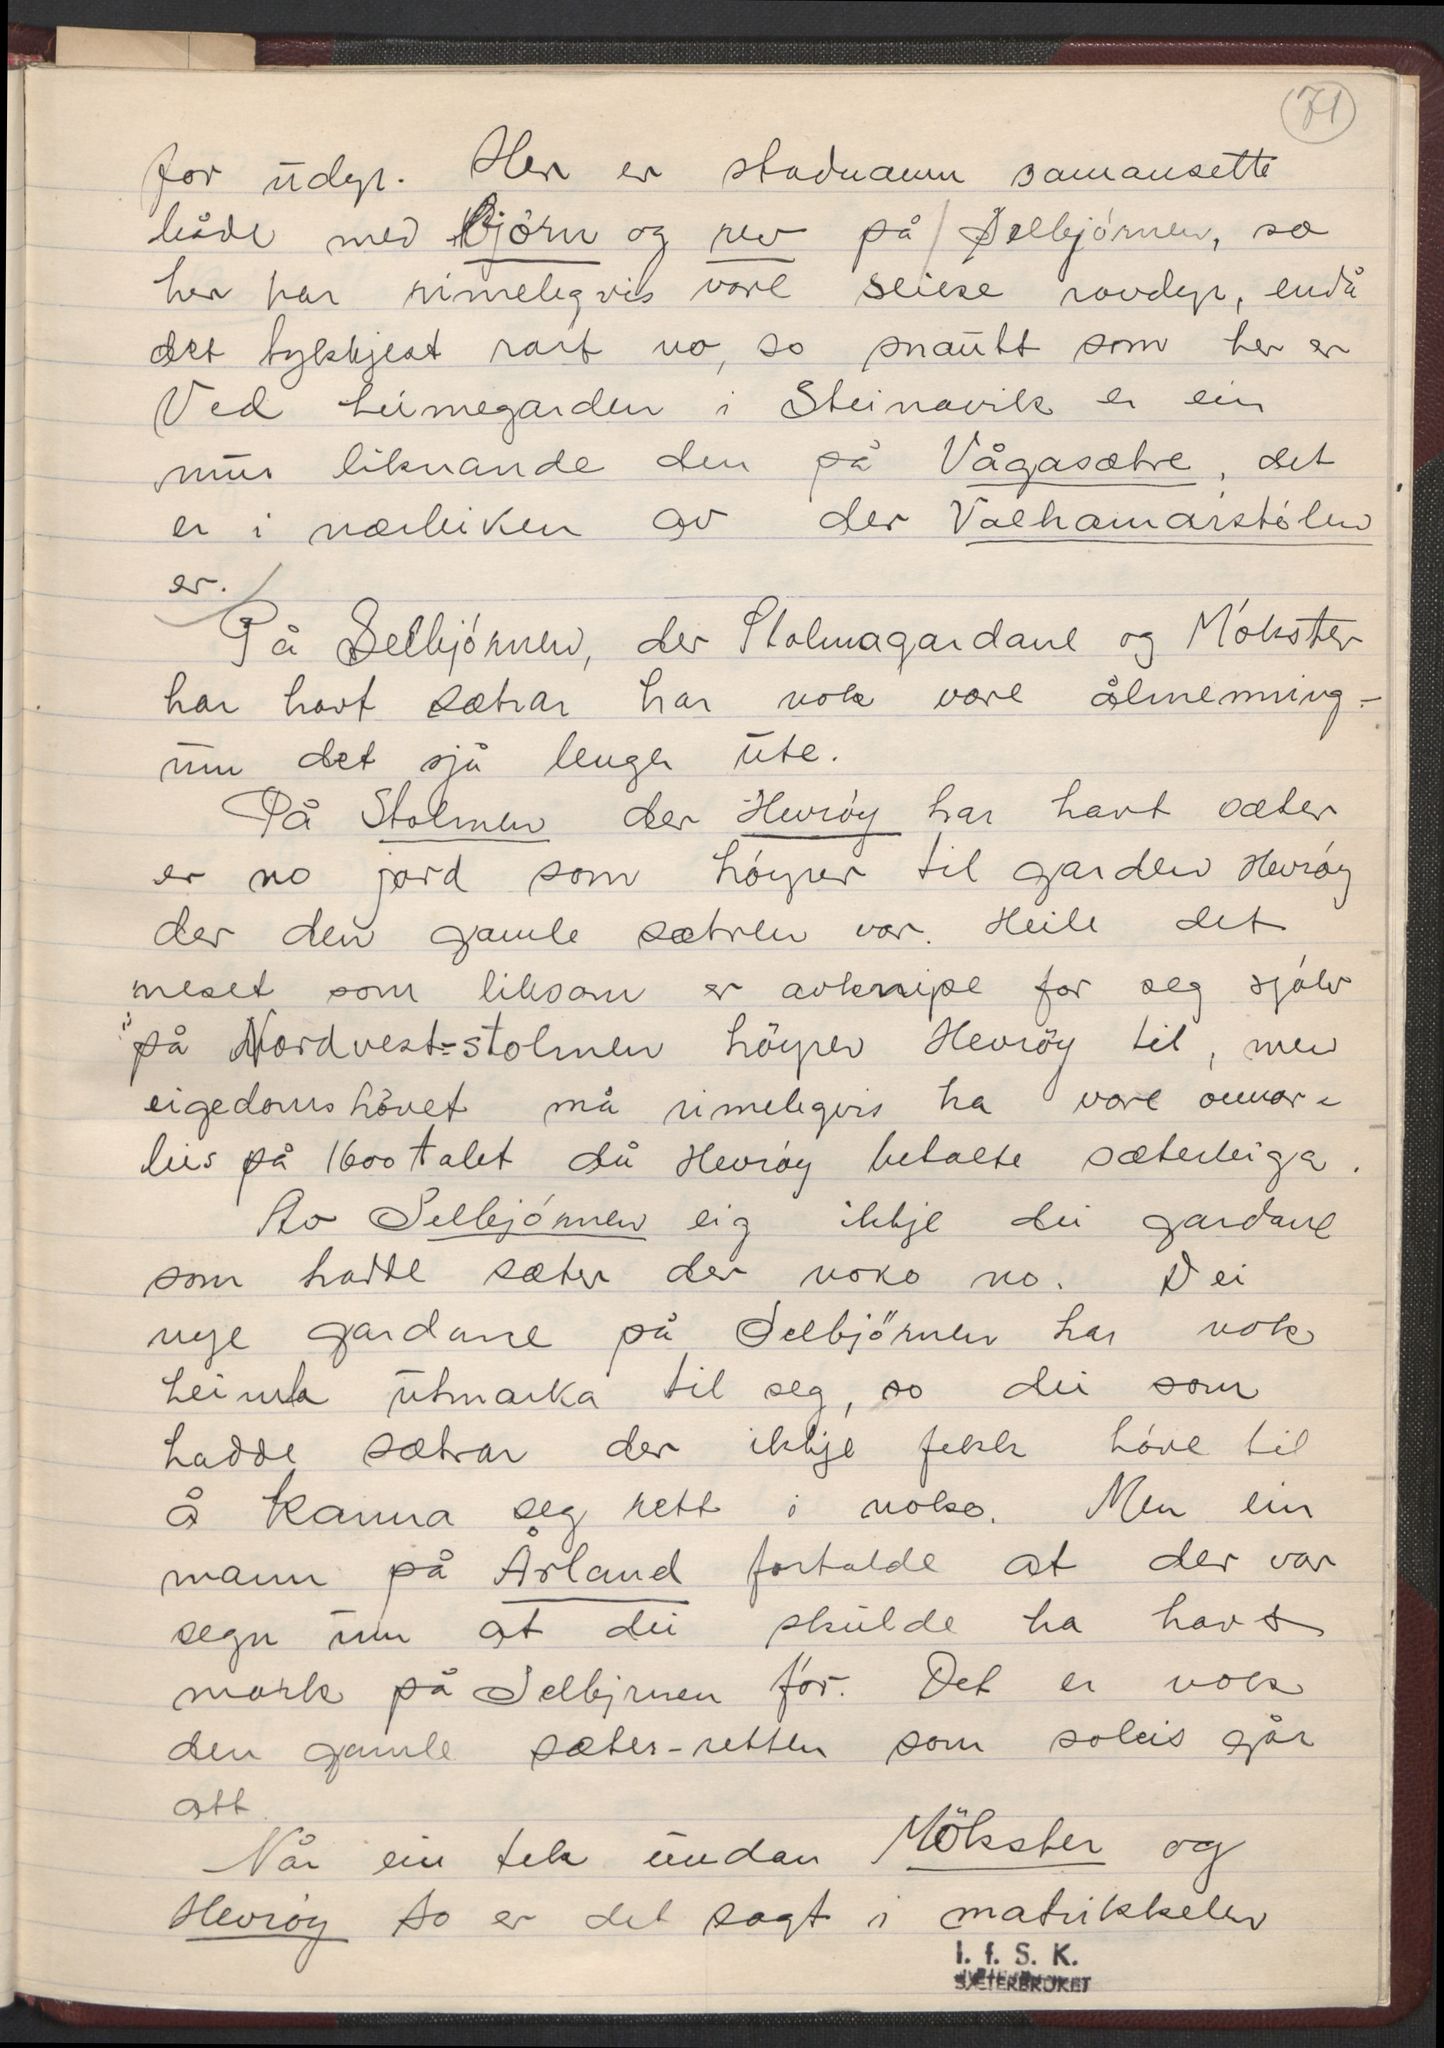 71
for udyr. Her er stadnamn samansette
både med Bjørn og rev på Selbjørnen, so
her har rimelegvis vore slikse rovdyr, endå
det tykkjest rart no, so snautt som her er
Ved heimegarden i Steinavik er ein
mur liknande den på Vågasætre, det
er i nærleiken av der Valhamarstølen
er.
På Selbjørnen, der Stolmagardane og Møkster
har havt sætrar har nok vore ålmenning-
um det sjå lenger ute.
På Stolmen der Hevrøy har havt sæter
er no jord som høyrer til garden Hevrøy
der den gamle sætren var. Heile det
neset som liksom er avknipe for seg sjølv
på Nordvest-stolmen høyrer Hevrøy til, men
eigedomshøvet må rimelegvis ha vore annar-
leis på 1600 talet då Hevrøy betalte sæterleiga.
Av Selbjørnen eig ikkje dei gardane
som hadde sæter der noko no. Dei
nye gardane på Selbjørnen har nok
heimla utmarka til seg, so dei som
hadde sætrar der ikkje fekk høve til
å kanna seg rett i noko. Men ein
mann på Årland fortalde at der var
segn um at dei skulde ha havt
mark på Selbjrnen før. Det er nok
den gamle sæter-retten som soleis går
att
Når ein tek undan Møkster og
Hevrøy so er det sagt i matrikkelen
I. f. S. K.
SÆTERBRUKET